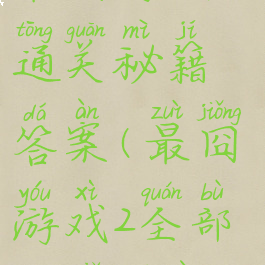 tōng guān mì jí
通关秘籍
dá àn zuì jiǒng
答案(最囧
yóu xì quán bù
游戏2全部